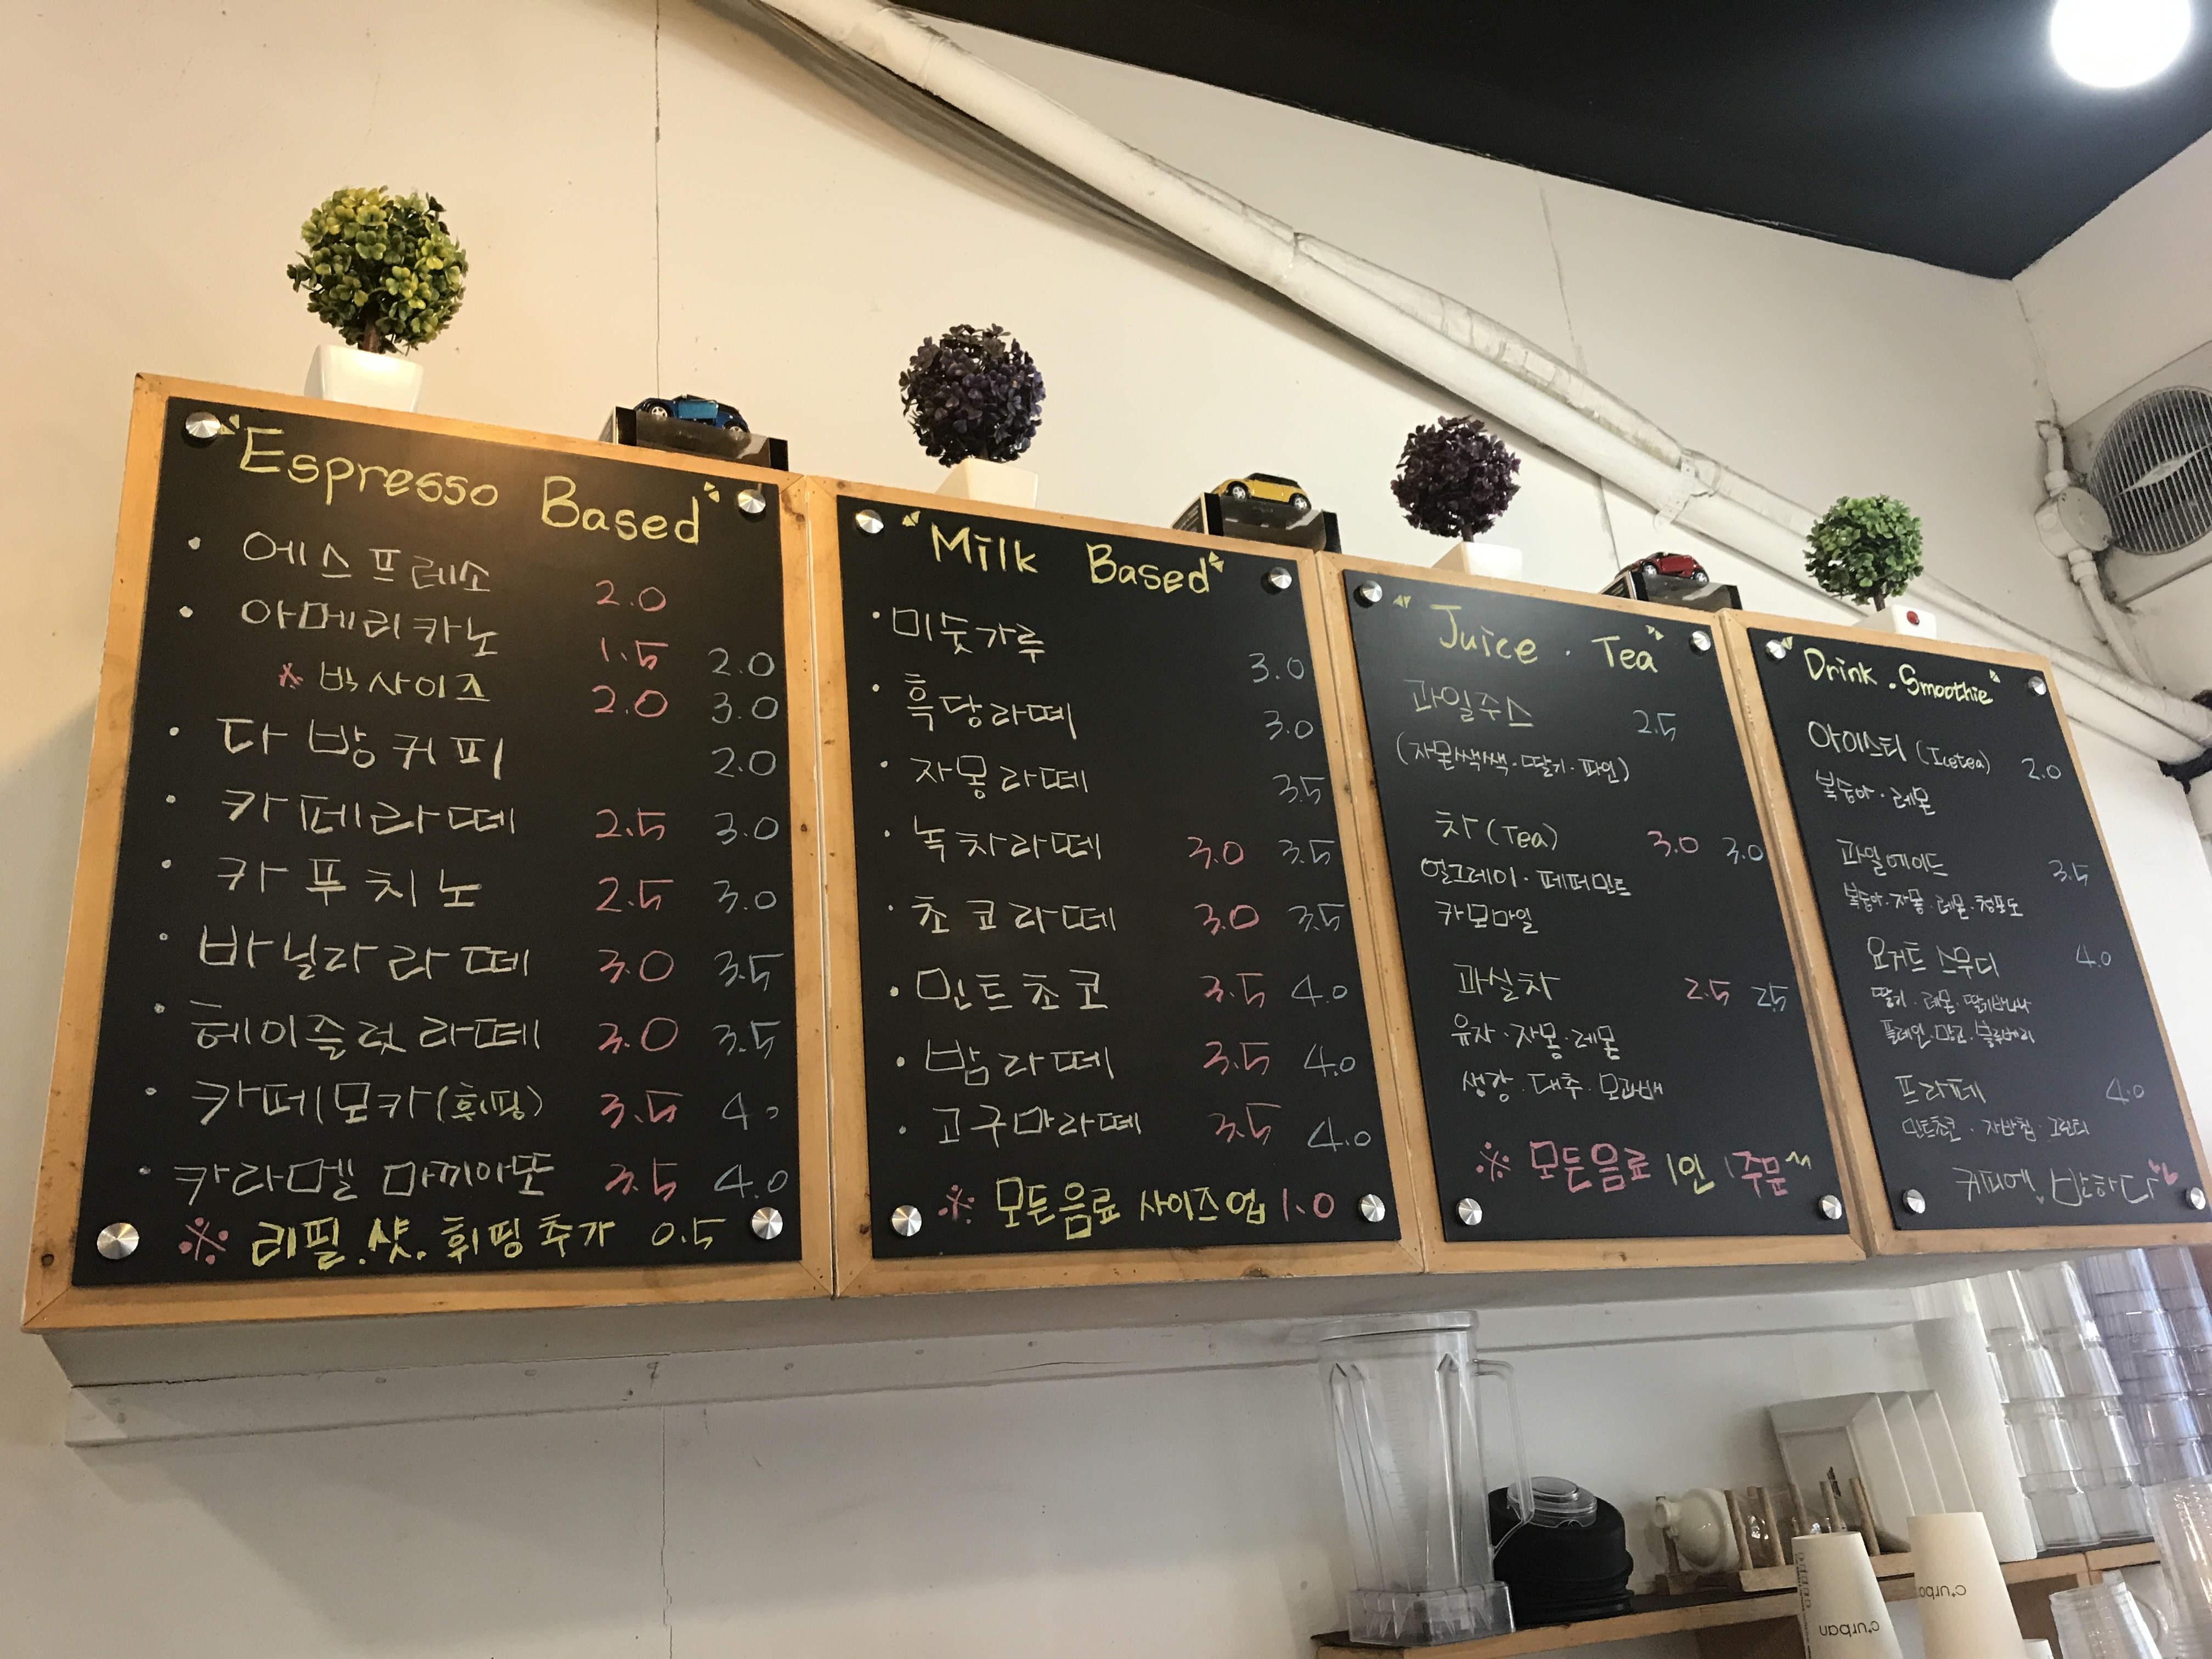 Espresso Based
· 에스프레소 2.0
· 아메리카노 1.5 2.0
※ 빅사이즈 2.0 3.0
· 다방커피 2.0
· 카페라떼 2.5 3.0
· 카푸치노 2.5 3.0
· 바닐라라떼 3.0 3.5
· 헤이즐럿라떼 3.0 3.5
· 카페모카(휘핑) 3.5 4.0
· 카라멜 마끼아또 3.5 4.0
※ 리필.샷.휘핑추가 0.5
Milk Based
· 미숫가루 3.0
· 흑당라떼 3.0
· 자몽라떼 3.5
· 녹차라떼 3.0 3.5
· 초코라떼 3.0 3.5
· 민트초코 3.5 4.0
· 밤라떼 3.5 4.0
· 고구마라떼 3.5 4.0
※ 모든음료 사이즈업 1.0
Juice . Tea
과일주스 2.5
(자몽쌕쌕.딸기.파인)
차(Tea) 3.0 3.0
얼그레이.페퍼민트
카모마일
과실차 2.5 2.5
유자.자몽.레몬
생강.대추.모과배
※ 모든음료 1인 1주문^^
Drink . Smoothie
아이스티(Icetea) 2.0
복숭아.레몬
과일에이드 3.5
복숭아.자몽.레몬.청포도
요거트 스무디 4.0
딸기.레몬.딸기바나나
플레인.망고.블루베리
프라페 4.0
민트초코.자바칩.그린티
커피에 반하다
c.urban
c.urban